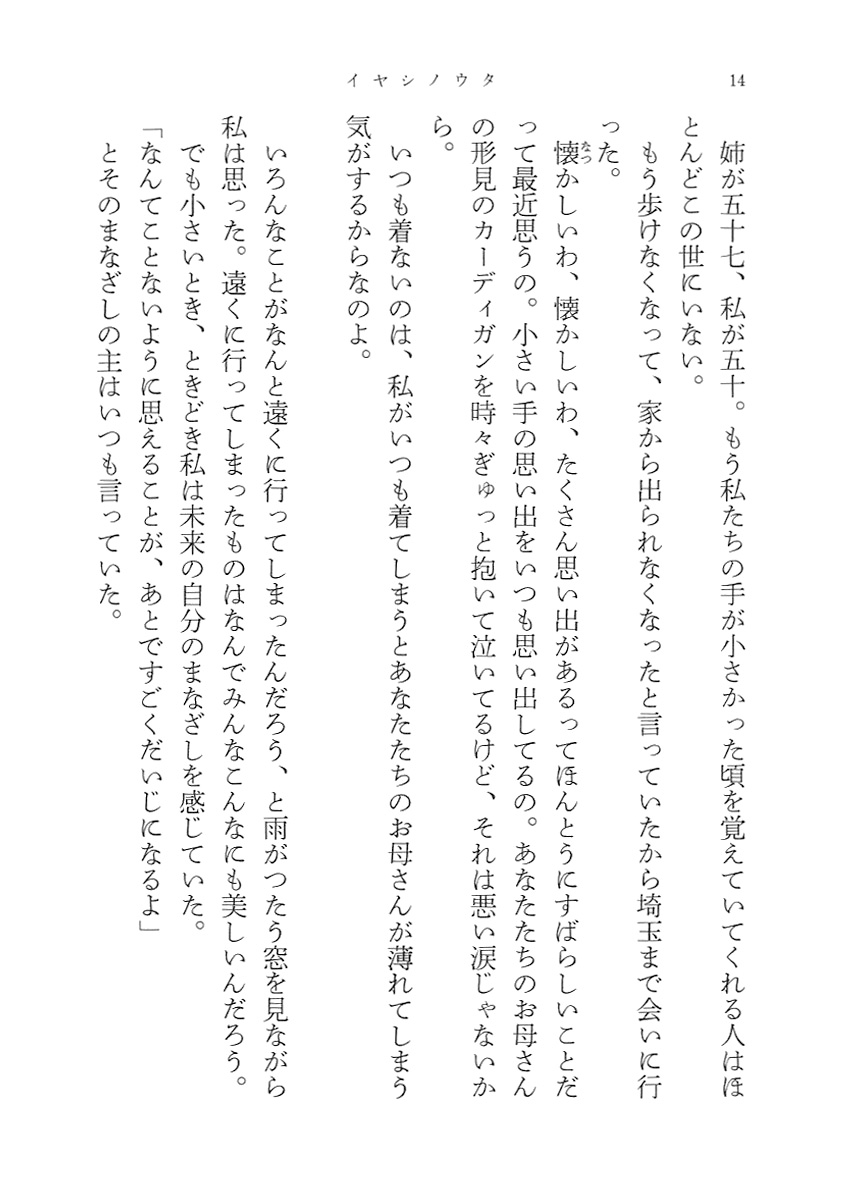 14
イヤシノウタ
姉が五十七、私が五十。もう私たちの手が小さかった頃を覚えていてくれる人はほ
とんどこの世にいない。
もう歩けなくなって、家から出られなくなったと言っていたから埼玉まで会いに行
った。
懐かしいわ、懐かしいわ、たくさん思い出があるってほんとうにすばらしいことだ
なつ
って最近思うの。小さい手の思い出をいつも思い出してるの。あなたたちのお母さん
の形見のカーディガンを時々ぎゅっと抱いて泣いてるけど、それは悪い涙じゃないか
ら。
いつも着ないのは、私がいつも着てしまうとあなたたちのお母さんが薄れてしまう
気がするからなのよ。
いろんなことがなんと遠くに行ってしまったんだろう、と雨がつたう窓を見ながら
私は思った。遠くに行ってしまったものはなんでみんなこんなにも美しいんだろう。
でも小さいとき、ときどき私は未来の自分のまなざしを感じていた。
「なんてことないように思えることが、あとですごくだいじになるよ」
とそのまなざしの主はいつも言っていた。